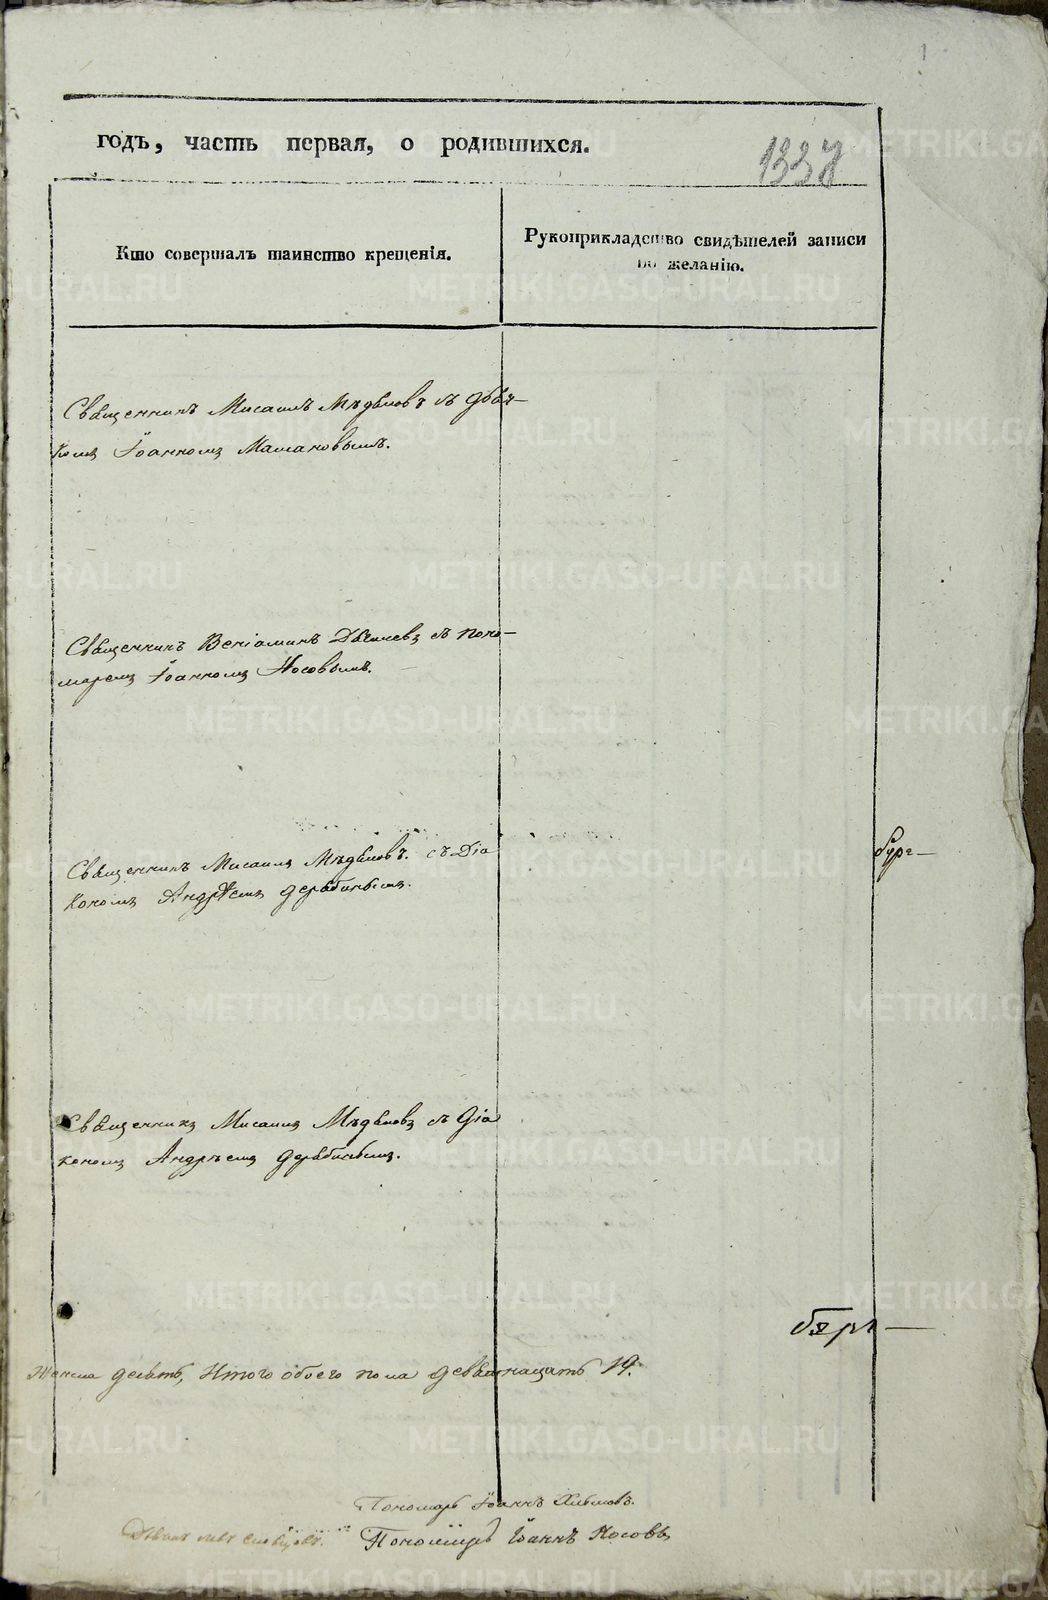 годъ, часть первая, о родившихся.
1337
Кто совершалъ таинство крещенія.
Рукоприкладство свидѣтелей записи
по желанію.
Священникъ Мисаилъ Мѣдьновъ съ дья-
комъ Іоанномъ
Священникъ Веніаминъ съ поно-
маремъ Іоанномъ Носовымъ.
Священникъ Мисаилъ Мѣдьновъ. съ Діа
кономъ Андрѣемъ Дерябинымъ.
Священникъ Мисаилъ Мѣдьновъ съ Діа
кономъ Андрѣемъ Дерябинымъ.
Женска десять, Итого обоего пола девятнацать 19.
Пономарь Іоаннъ
Пономарь Іоаннъ Носовъ
METRIKI.GASO-URAL.RU